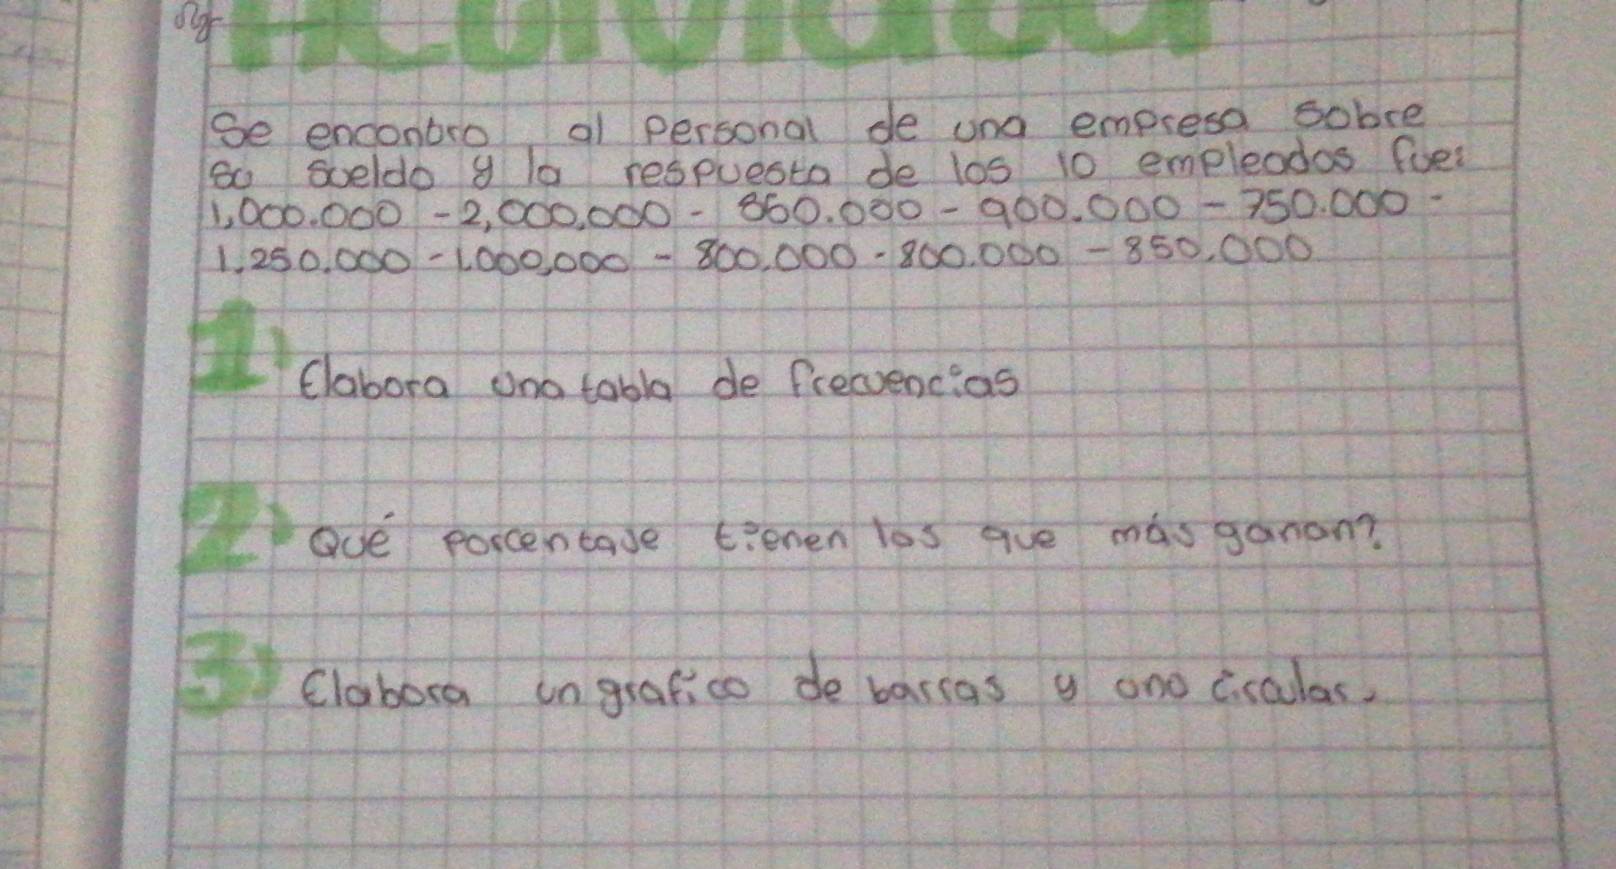 Actividad
Se encontro al personal de una empresa sobre
su sueldo y la respuesta de los 10 empleados fue:
1,000.000 - 2,000,000 - 860.000 - 900.000 - 750.000 -
1.250.000 - 1.000,000 - 800.000 - 800.000 - 850.000
1) Elabora una tabla de frecuencias
2) Qué porcentaje tienen los que más ganan?
3) Elabora un grafico de barras y uno circular.